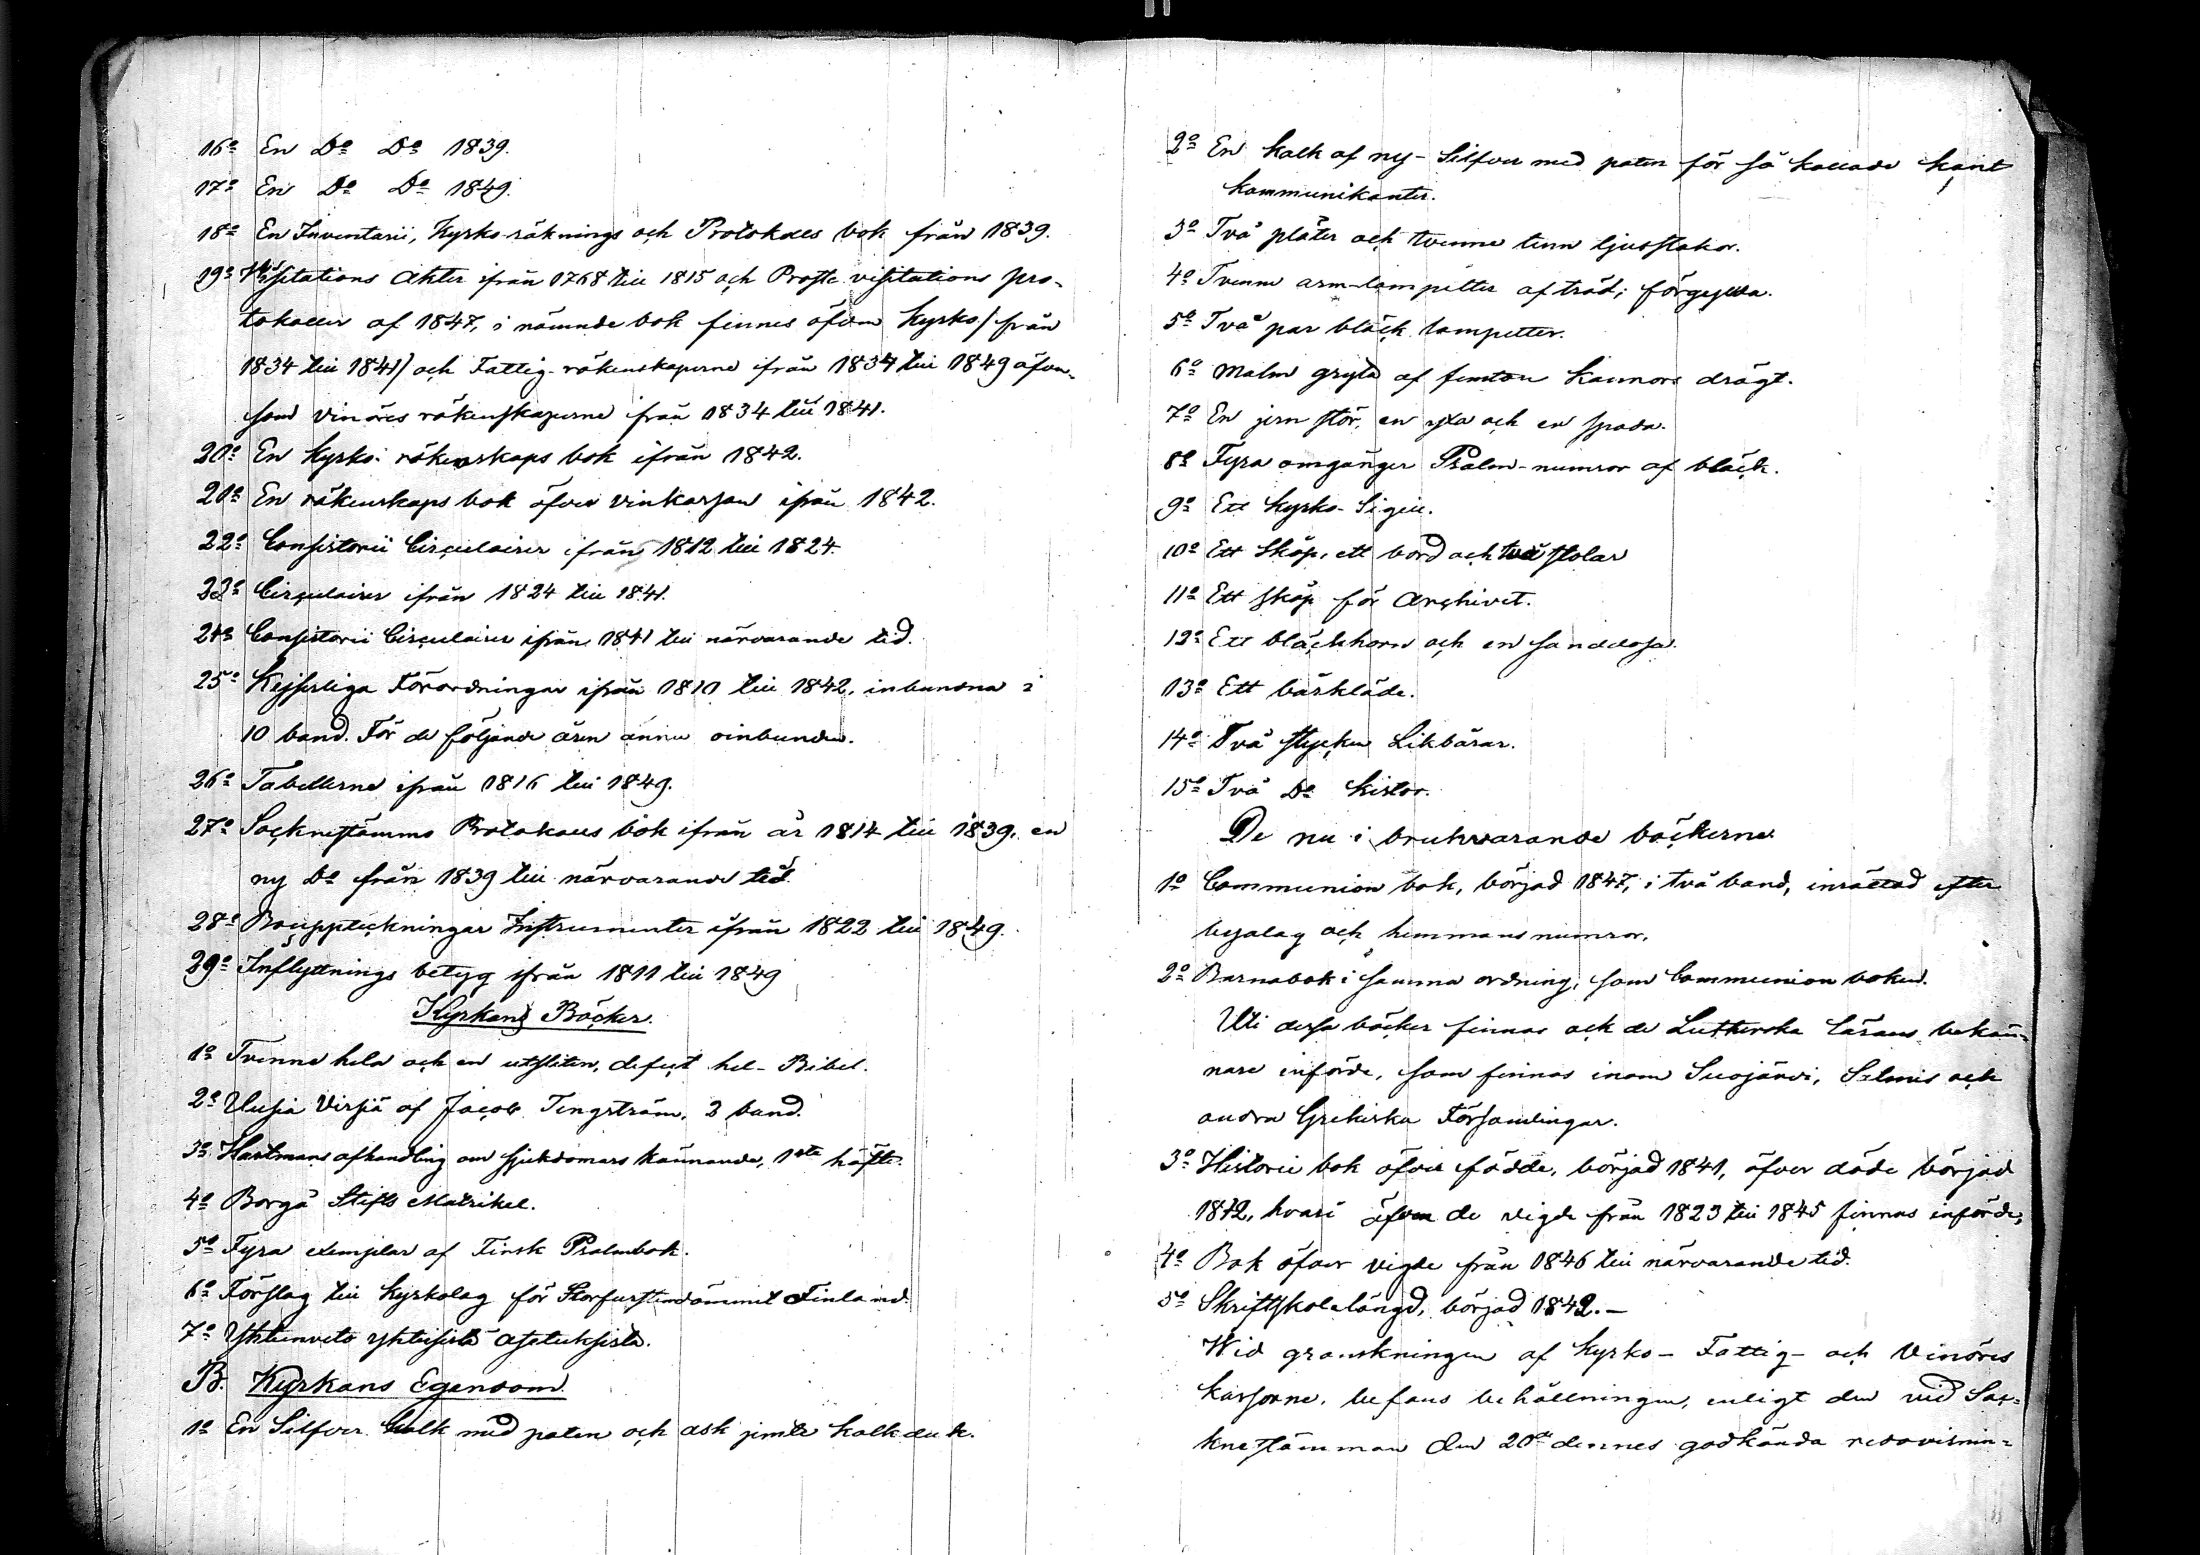 16o En Do Do 1839.
17o En Do Do 1849.
18o En Inventarii, Kyrko-räknings och Protokolls bok från 1839.
19o Visitations Akter ifrån 1768 till 1815 och Prosts visitations pro-
tokoller af 1847, i nämnde bok finnes äfven Kyrko/från
1834 till 1841/ och Fattig-räkenskaperne ifrån 1834 till 1849 äfven-
som Vinöres räkenskaperne från 1834 till 1841.
20o En Kyrko-räkenskaps bok ifrån 1842.
21o En räkenskaps bok öfver vinkassan ifrån 1842.
22o Consistorii Circulairer ifrån 1812 till 1824.
23o Circulairer ifrån 1824 till 1841.
24o Consistorii Circulairer ifrån 1841 till närvarande tid.
25o Kejserliga Förordningar ifrån 1810 till 1842, inbundna i
10 band. För de följande åren ännu oinbunden.
26o Tabellerne ifrån 1816 till 1849.
27o Socknestämmo Protokolls bok ifrån år 1814 till 1839, en
ny Do från 1839 till närvarande tid.
28o Bouppteckningar Instrumenter ifrån 1822 till 1849.
29o Inflyttnings betyg ifrån 1811 till 1849
Kyrkans Böcker.
1o Tvenne hela och en utsliten, defect hel-Bibel.
2o Uusia Virsiä af Jacob Tengström, 2 band.
3o Hartmans afhandling om sjukdomars kännande, 1sta häfte.
4o Borgå Stifts Matrikel.
5o Fyra exemplar af Finsk Psalmbok.
6o Förslag till Kyrkolag för Storfurstendömmet Finland.
7o Yhteenveto yhteisistä
B. Kyrkans Egendom.
1o En Silfver Kalk med paten och ask jemte kalkduk.
2o En kalk af ny-Silfver med paten för så kallade
kommunikanter.
3o Två plåter och tvenne tenn ljusstakar.
4o Tvenne arm-lampetter af träd, förgyllda.
5o Två par bläck lampetter.
6o Malm gryta af femton kannors drägt.
7o En jern stör, en yxa och en spada.
8o Fyra omgånger Psalm-numror af bläck.
9o Ett Kyrko-Sigill.
10o Ett skåp, ett bord och två stolar
11o Ett skåp för Archivet.
12o Ett bläckhorn och en sanddosa.
13o Ett bårkläde.
14o Två stycken Likbårar.
15o Två Do Kistor.
De nu i brukvarande böckerne
1o Communion bok, börjad 1847, i två band, inrättad efter
byalag och hemmans numror.
2o Barnabok i samma ordning, som Communion boken.
Uti dessa böcker finnas ock de Lutherska lärans bekän-
nare införde, som finnas inom Suojärvi, Salmis och
andra Grekiska Församlingar.
3o Historie bok öfver födde, börjad 1841, öfver döde börjad
1842, hvari äfven de vigde från 1823 till 1845 finnas införde,
4o Bok öfver vigde från 1846 till närvarande tid.
5o Skriftskolelängd, börjad 1842.-
Wid granskningen af Kyrko- Fattig- och Vinöres
kassorne, befans behållningen, enligt den vid Soc-
knestämman den 20de dennes godkända redovisnin-